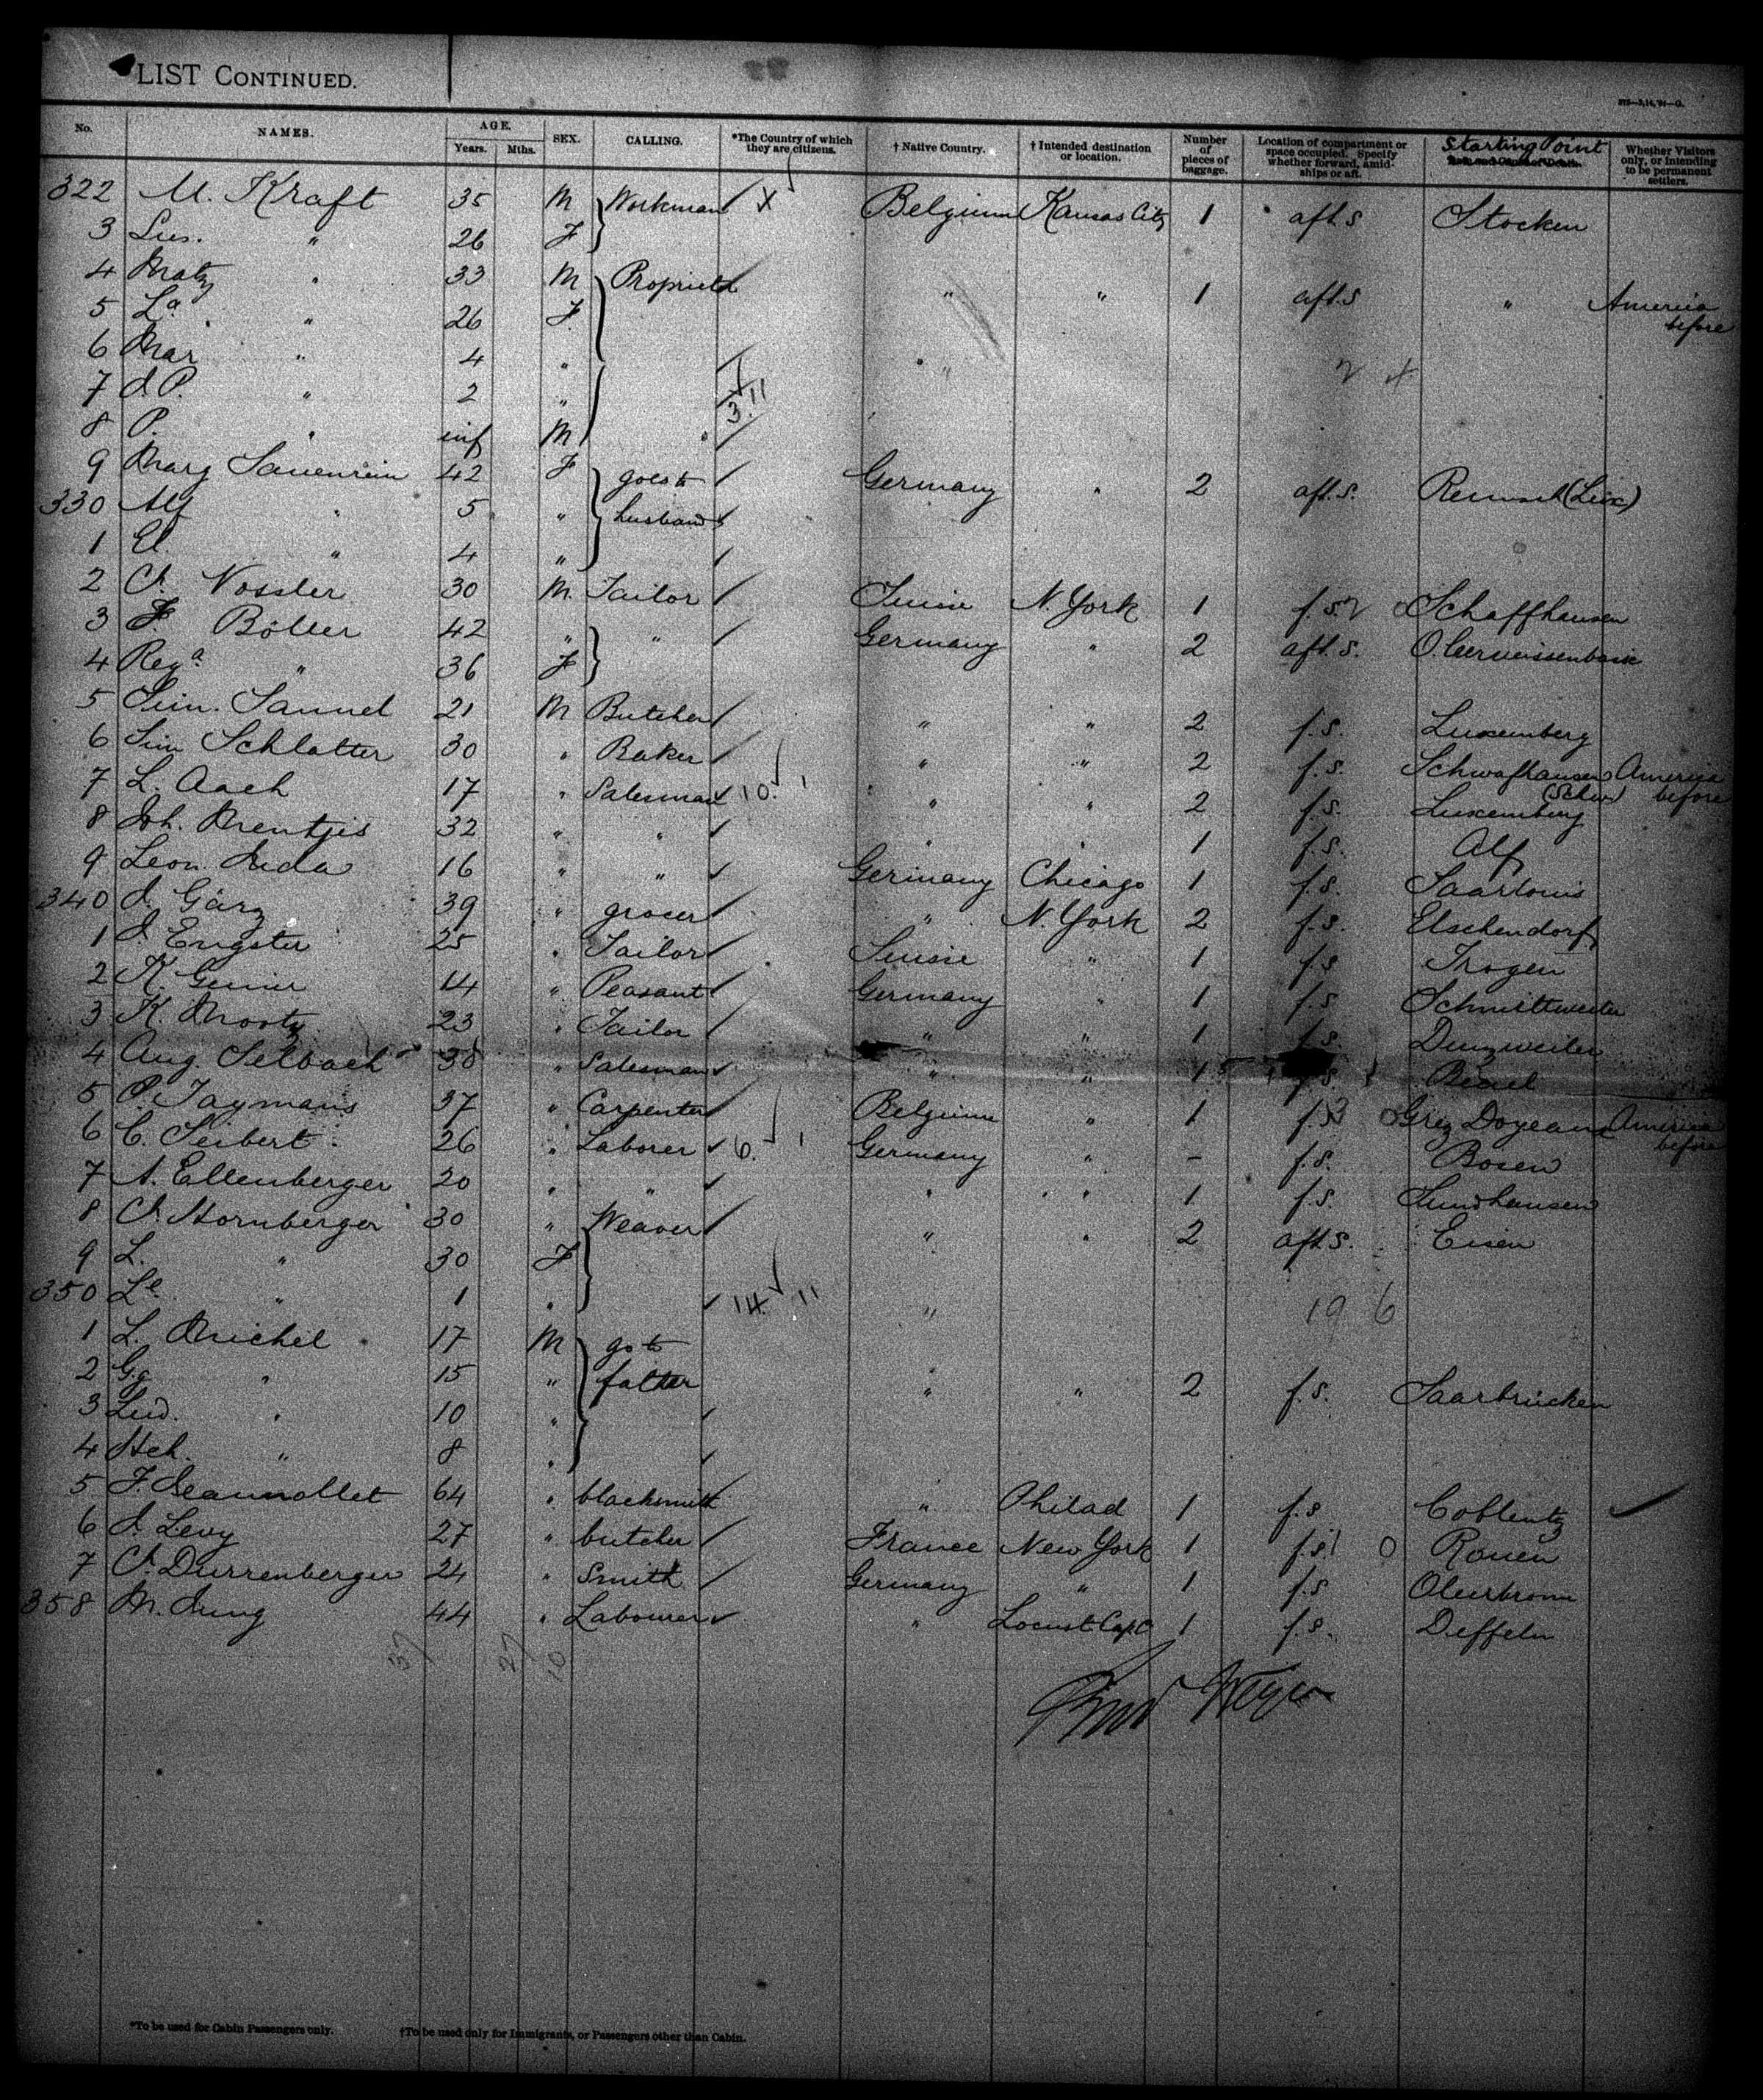 LIST CONTINUED.
No. NAMES. AGE. Years. Mths. SEX. CALLING. *The Country of which they are citizens. † Native Country. † Intended destination or location. Number of pieces of baggage. Location of compartment or space occupied. Specify whether forward, amidships or aft. Starting Point Whether Visitors only, or intending to be permanent settlers.
322 M. Kraft 35 M Workman X Belgium Kansas City 1 aft s Stocken
3 Lus. " 26 F
4 Matz " 33 M Propriet " " 1 aft.s " America before
5 La " 26 F.
6 Mar " 4 " "
7 J. P. " 2 " 3. 11
8 P. " inf M
9 Marg 42 F goes to Germany " 2 aft. s. (Lux)
330 Alf " 5 " husband
1 El. " 4 "
2 Ch. Vossler 30 M. Tailor Suisse N. York 1 f. s. Schaffhausen
3 F Böller 42 " " Germany " 2 aft. s.
4 Rega " 36 F
5 Sim. Samuel 21 M Butcher " " 2 f. s. Luxemberg
6 Sim Schlatter 30 " Baker " " 2 f. s. America before
7 L. Aach 17 " Salesman 10. " " 2 f. s. Luxemberg
8 Joh. Mentjis 32 " " " " 1 f. s. Alf
9 Leon. 16 " " Germany Chicago 1 f. s. Saarlouis
340 J. Gärz 39 " grocer " N. York 2 f. s. Elschendorf
1 J. Engster 25 " Tailor Suisse " 1 f. s Trogen
2 K. 14 " Peasant Germany " 1 f. s Schmittweiler
3 K. Mootz 23 " Tailor " " 1 f. s. Dunzweiler
4 Aug. Selbach 38 " Salesman " " 1 f. s.
5 P. Taymans 37 " Carpenter Belgium " 1 f. s Grez Doyeau America before
6 C. Seibert 26 " Laborer 6. Germany " - f. s. Bosen
7 A. Ellenberger 20 " " " " 1 f. s. Sundhausen
8 Ch. Hornberger 30 " Weaver " " 2 aft s. Eisen
9 L. " 30 F
350 Le " 1 " 14. 11 " 19 6
1 L. Michel 17 M go to
2 Gg " 15 " father " " 2 f. s. Saarbrücken
3 Lud. " 10 "
4 Hch. " 8 "
5 F. 64 " blacksmith " Philad 1 f. s Coblentz
6 J. Levy 27 " butcher France New York 1 f. s. 0 Rouen
7 Ch. Durrenberger 24 " Smith Germany " 1 f. s
358 M. Jung 44 " Labourer " Locust 1 f. s. Differn
37 27 10
*To be used for Cabin Passengers only. †To be used only for Immigrants, or Passengers other than Cabin.